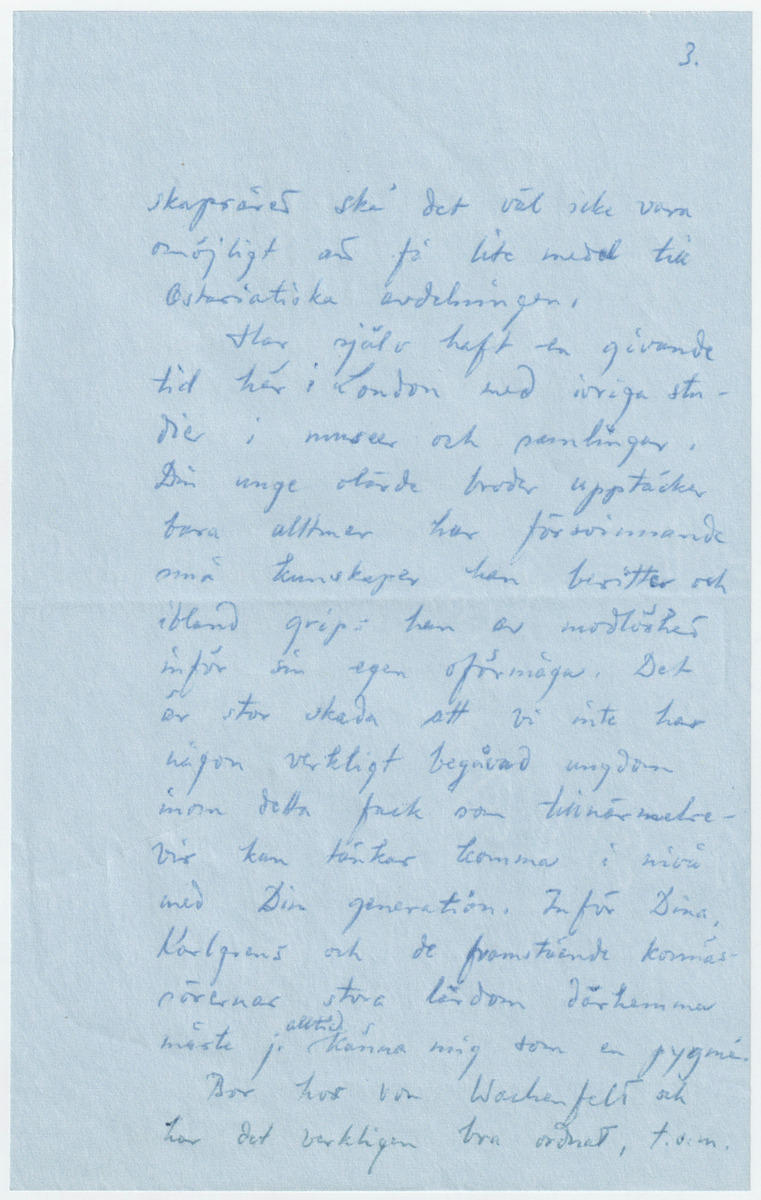 3.
skapsåret ska' det väl icke vara
omöjligt att få lite medel till
Ostasiatiska avdelningen.
Har själv haft en givande
tid här i London med ivriga stu-
dier i museer och samlingar.
Din unge olärde broder upptäcker
bara alltmer hur försvinnande
små kunskaper han besitter och
ibland grips han av modlöshet
inför sin egen oförmåga. Det
är stor skada att vi inte har
någon verkligt begåvad ungdom
inom detta fack som tillnärmelse-
vis kan tänkas komma i nivå
med Din generation. Inför Dina,
Karlgrens och de framstående konnäs-
sörernas stora lärdom därhemma
måste j. alltid känna mig som en pygmé.
Bor hos von Wachenfelt och
har det verkligen bra ordnat, t.o.m.